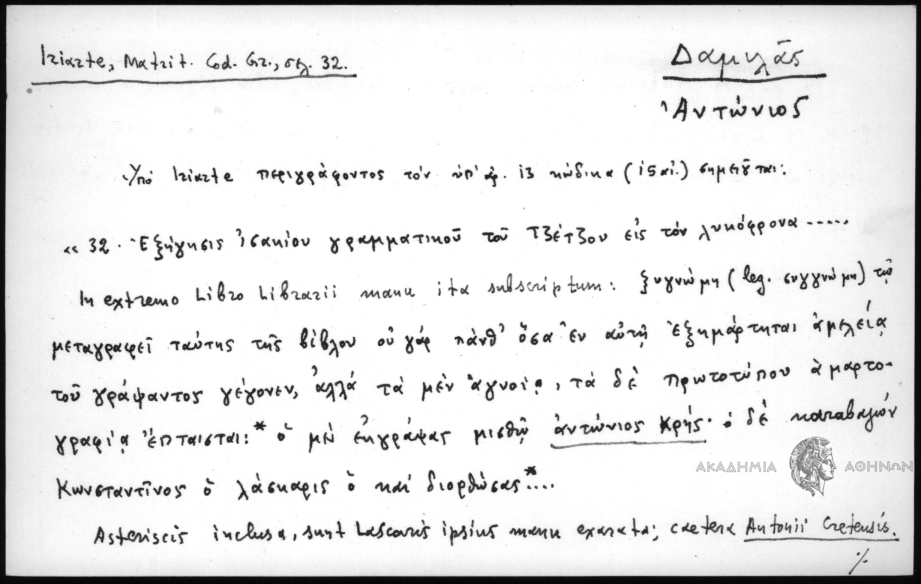 Iriarte, Matrit. Cod. Gr., σελ. 32.
Δαμιλᾶς
Ἀντώνιος
Ὑπό Iriarte περιγράφοντος τόν ὑπ' ἀρ. 13 κώδικα (15 αἰ.) σημειοῦται:
«32. Ἐξήγησις Ἰσακίου γραμματικοῦ τοῦ Τζέτζου εἰς τόν λυκόφρονα .....
In extremo Libro Librarii manu ita subscriptum: ξυγνώμη (leg. συγγνώμη) τῷ
μεταγραφεῖ ταύτης τῆς βίβλου οὐ γάρ πάνθ' ὅσα ἐν αὐτῇ ἐξημάρτηται ἀμελείᾳ
τοῦ γράψαντος γέγονεν, ἀλλά τά μέν ἀγνοίᾳ, τά δέ πρωτοτύπου ἁμαρτο-
γραφίᾳ ἔπταισται: * ὁ μέν ἐκγράψας μισθῷ ἀντώνιος Κρής· ὁ δέ καταβαλών
Κωνσταντῖνος ὁ λάσκαρις ὁ καί διορθώσας*....
ΑΚΑΔΗΜΙΑ ΑΘΗΝΩΝ
Asteriscis inclusa, sunt Lascaris ipsius manu exarata; caetera Antonii Cretensis.
·/.